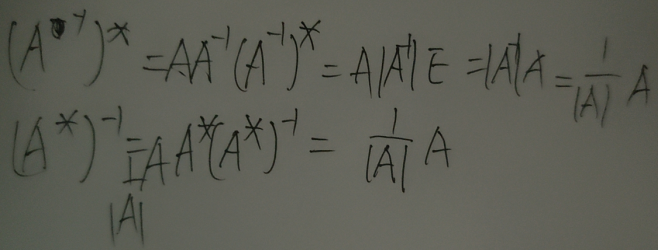 (A⁻¹)* = AA⁻¹(A⁻¹)* = A|A⁻¹|E = |A⁻¹|A = 1/|A| A
(A*)⁻¹ = 1/|A| AA*(A*)⁻¹ = 1/|A| A